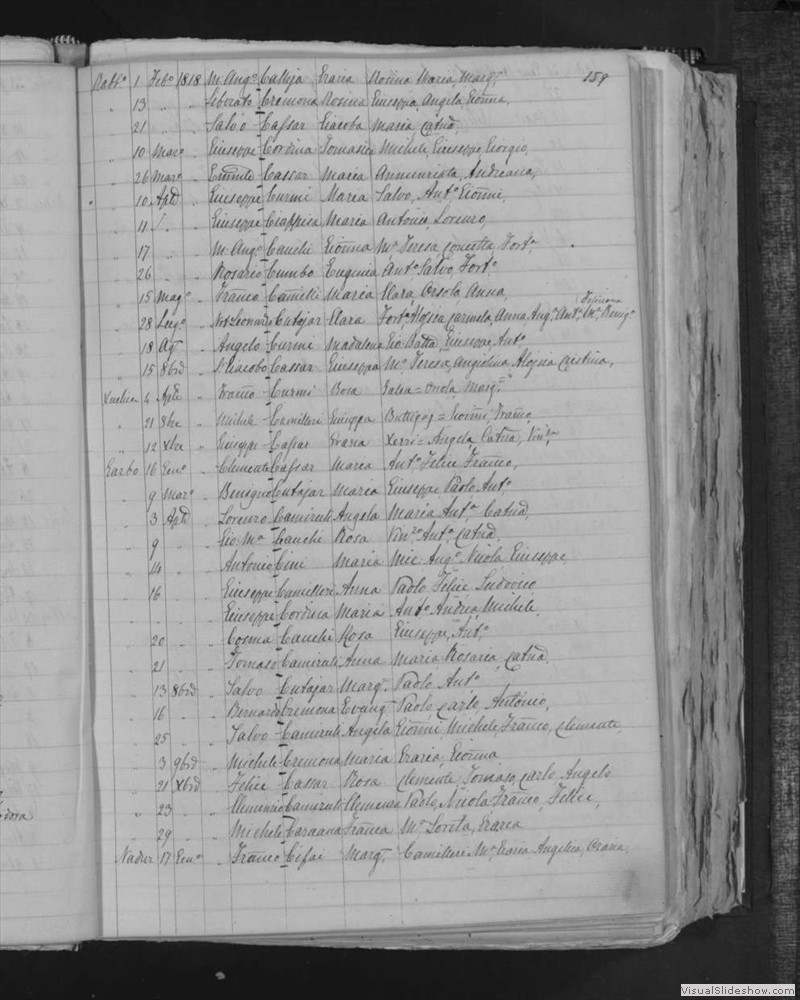 Rabto 1 Febo 1818 M. Ango Calleja Grazia Rosina Maria Margta 159
" 13 " " Liberato Cremona Rosina Giuseppa Angela Gionna,
" 21 " " Salvo Cassar Giacoba Maria Catna,
" 10 Marzo " Giuseppe Cordina Tomasica Michele, Giuseppe Giorgio,
" 26 Marzo " Cassar Maria Annunziata, Andreana,
" 10 Aple " Giuseppe Curmi Maria Salvo, Anto Gionni,
" 11 " Giuseppe Ciappisa Maria Antonio, Lorenzo,
" 17 " " M. Ango Cauchi Gionna Ma Teresa Concetta Forta
" 26 " Rosario Cumbo Eugenia Anto Salvo, Forto
" 15 Mago " Franco Camilli Maria Clara, Orsola, Anna,
" 28 Lugo " Not Leonardo Cutajar Clara Forta Aloisea Carmela, Anna, Anga Anta Ma Beniga
" 18 Agto " Angelo Curmi Madalena Gio Batta, Giuseppe, Anto
" 15 8bre " Giacobo Cassar Giuseppa Ma Teresa, Angiolina Aloisia Cristina,
4 Aple " Franco Curmi Rosa = Margta
" 21 9bre " Michele Camilleri Giuseppa Buttigieg = Gionni, Franco,
" 12 Xbre " Giuseppe Cassar Grazia Xerri = Angela Catna, Vinza
Garbo 16 Geno " Clemente Cassar Maria Anto Felice Franco,
" 9 Marzo " Benigno Cutajar Maria Giuseppe Paolo Anto
" 3 Aple " Lorenzo Camizuli Angela Maria Anta Catna,
" 9 " " Gio. Ma Cauchi Rosa Vinza Anta Catna,
" 14 " " Antonio Cini Maria Mic. Ango Nicola Giuseppe,
" 16 " " Giuseppe Camilleri Anna Paolo Felice Ludovico
" " " Giuseppe Cordina Maria Anto Andrea Michele
" 20 " " Cosma Cauchi Rosa Giuseppe, Anto
" 21 " " Tomaso Camizuli Anna Maria Rosaria, Catna,
" 13 8bre " Salvo Cutajar Margta Paolo Anto
" 16 " " Bernardo Cremona Evang Paolo Carlo Antonio,
" 25 " " Salvo Camizuli Angela Gionni Michele, Franco, Clemente,
" 3 9bre " Michele Cremona Maria Grazia, Gionna
" 21 Xbre " Felice Cassar Rosa Clemente, Tomaso, Carlo Angelo
" 23 " " Clemenzio Camizuli Clemenza Paolo, Nicola Franco, Felice,
" 29 " " Michele Caruana Franca Ma Loreta, Grazia
Nadur 17 Geno " Franco Cifai Margta Camilleri Ma Grazia Angelica, Orazia,
VisualSlideshow.com